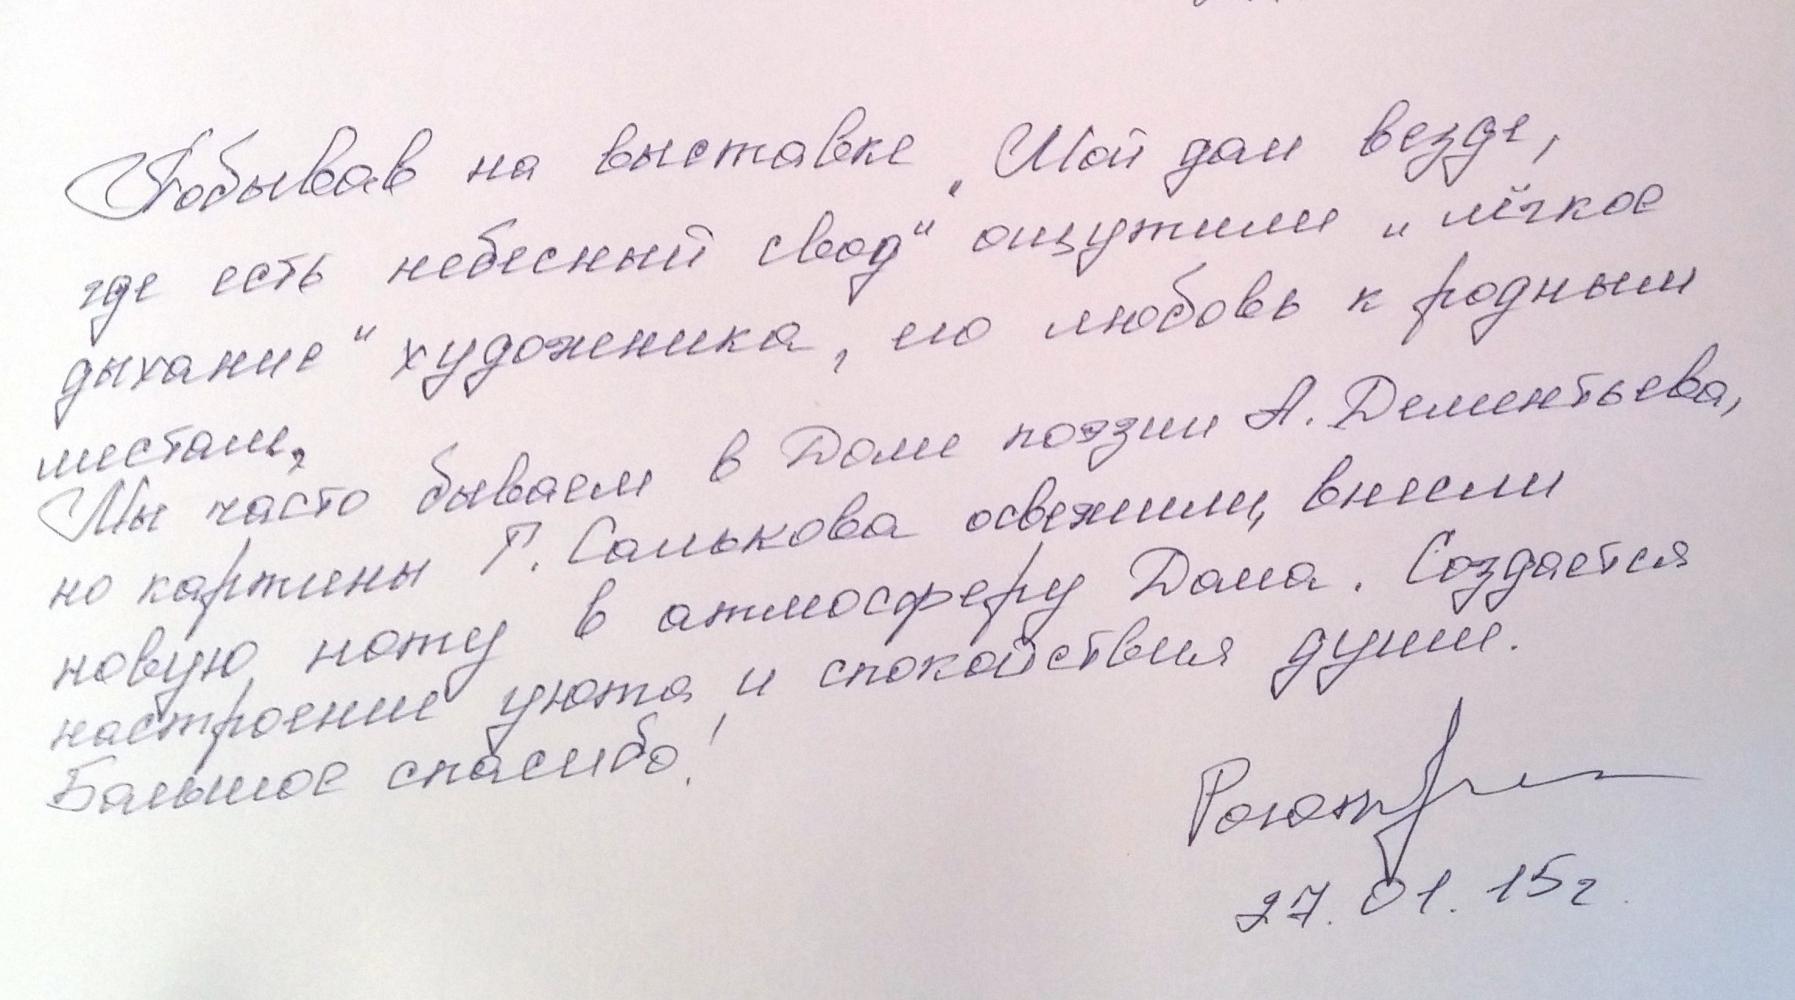 Побывав на выставке „Мой дом везде,
где есть небесный свод" ощутили „лёгкое
дыхание" художника, его любовь к родным
местам.
Мы часто бываем в Доме поэзии А. Дементьева,
но картины Г. Самькова освежили, внесли
новую ноту в атмосферу Дома. Создается
настроение уюта и спокойствия души.
Большое спасибо!
27.01.15г.